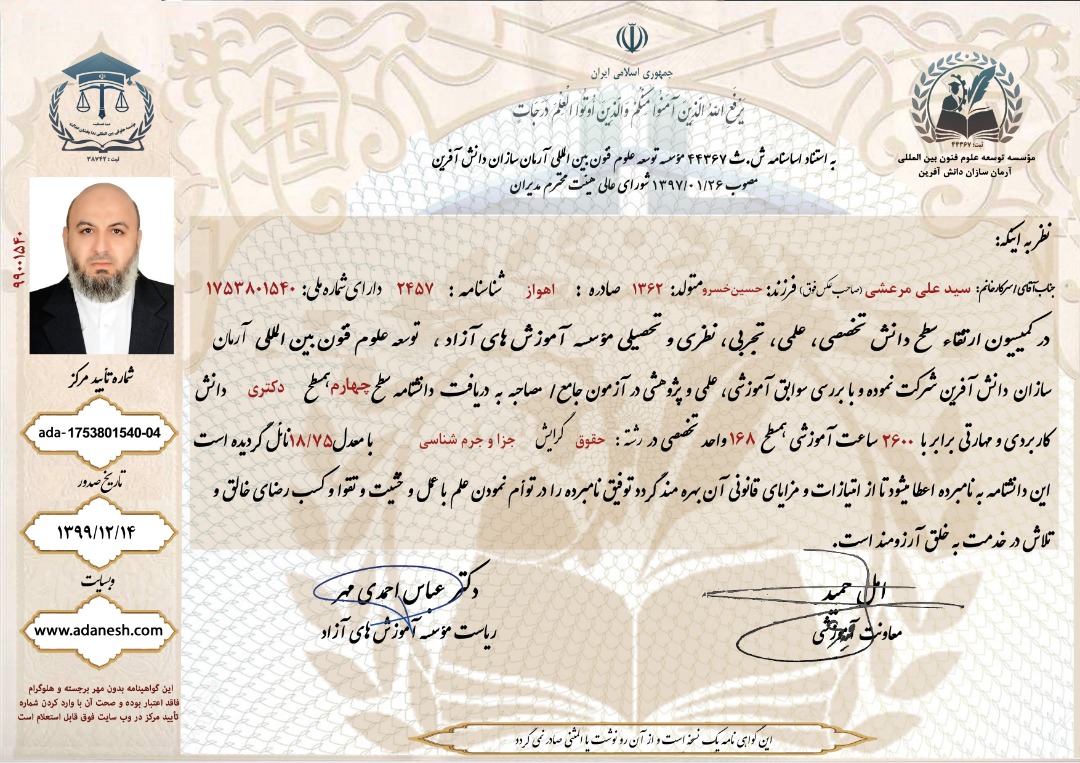 جمهوری اسلامی ایران
یَرْفَعِ اللهُ الَّذینَ آمَنُوا مِنْکُمْ وَالَّذینَ أُوتُوا الْعِلْمَ دَرَجَاتٍ
به استناد اساسنامه ش.ث ۴۴۳۶۷ مؤسسه توسعه علوم فنون بین المللی آرمان سازان دانش آفرین
مصوب ۱۳۹۷/۰۱/۲۶ شورای عالی هیئت محترم مدیران
ثبت: ۴۴۳۶۷
مؤسسه توسعه علوم فنون بین المللی
آرمان سازان دانش آفرین
ثبت: ۳۸۷۴۲
۹۹۰۰۱۵۴۰
نظر به اینکه:
جناب آقای/سرکار خانم: سید علی مرعشی (صاحب عکس فوق) فرزند: حسین خسرو متولد: ۱۳۶۲ صادره : اهواز شناسنامه : ۲۴۵۷ دارای شماره ملی: ۱۷۵۳۸۰۱۵۴۰
در کمیسیون ارتقاء سطح دانش تخصصی، علمی، تجربی، نظری و تحصیلی مؤسسه آموزش های آزاد ، توسعه علوم فنون بین المللی آرمان
سازان دانش آفرین شرکت نموده و با بررسی سوابق آموزشی، علمی و پژوهشی در آزمون جامع/ مصاحبه به دریافت دانشنامه سطح چهارم همسطح دکتری دانش
کاربردی و مهارتی برابر با ۲۶۰۰ ساعت آموزشی همسطح ۱۶۸ واحد تخصصی در رشته : حقوق گرایش جزا و جرم شناسی با معدل ۱۸/۷۵ نائل گردیده است
این دانشنامه به نامبرده اعطا میشود تا از امتیازات و مزایای قانونی آن بهره مند گردد توفیق نامبرده را در توأم نمودن علم با عمل و خشیت و تقوا و کسب رضای خالق و
تلاش در خدمت به خلق آرزومند است.
شماره تأیید مرکز
ada-1753801540-04
تاریخ صدور
۱۳۹۹/۱۲/۱۴
وبسایت
www.adanesh.com
این گواهینامه بدون مهر برجسته و هلوگرام
فاقد اعتبار بوده و صحت آن با وارد کردن شماره
تأیید مرکز در وب سایت فوق قابل استعلام است
امل حمید
معاونت آموزشی
دکتر عباس احمدی مهر
ریاست مؤسسه آموزش های آزاد
این گواهی نامه یک نسخه است و از آن رونوشت یا المثنی صادر نمی گردد